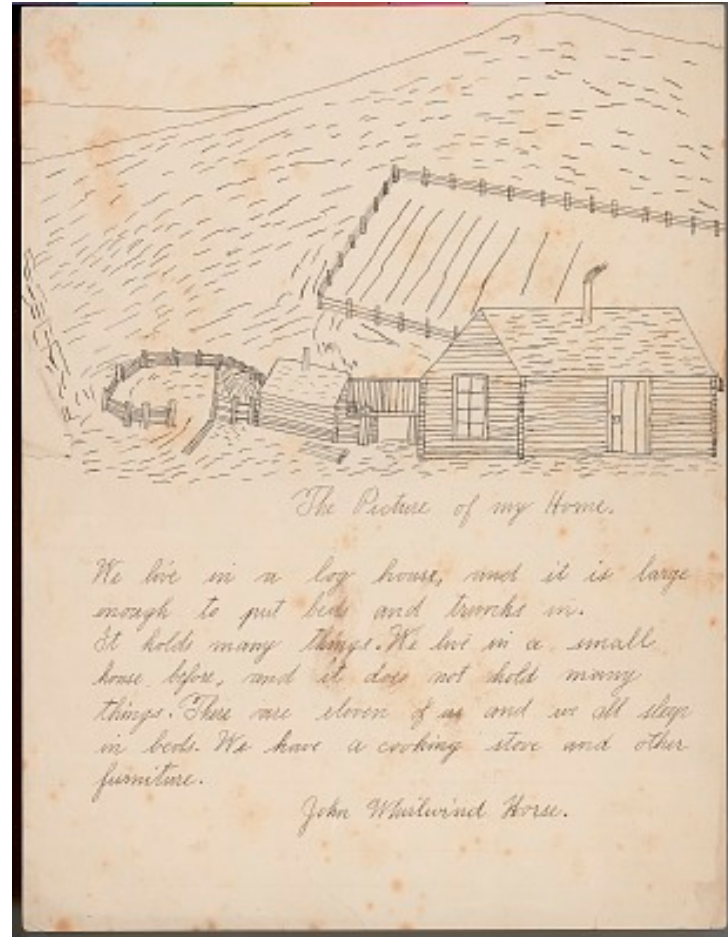 The Picture of my Home.
We live in a log house, and it is large
enough to put beds and trunks in.
It holds many things. We live in a small
house before, and it does not hold many
things. There are eleven of us and we all sleep
in beds. We have a cooking stove and other
furniture.
John Whirlwind Horse.